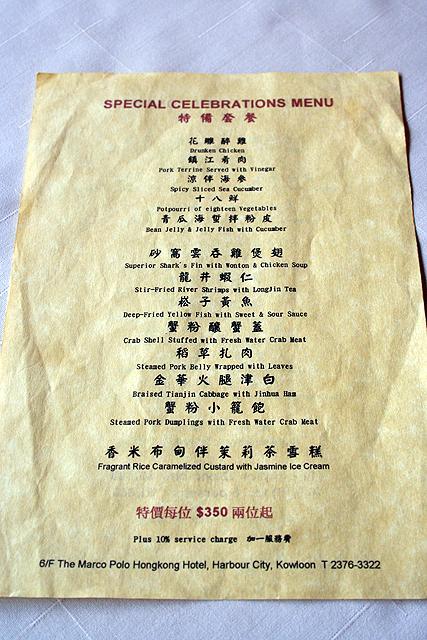 SPECIAL CELEBRATIONS MENU
特備套餐
花雕醉雞
Drunken Chicken
鎮江肴肉
Pork Terrine Served with Vinegar
涼伴海參
Spicy Sliced Sea Cucumber
十八鮮
Potpourri of eighteen Vegetables
青瓜海蜇拌粉皮
Bean Jelly & Jelly Fish with Cucumber
砂窩雲吞雞煲翅
Superior Shark's Fin with Wonton & Chicken Soup
龍井蝦仁
Stir-Fried River Shrimps with LongJin Tea
菘子黃魚
Deep-Fried Yellow Fish with Sweet & Sour Sauce
蟹粉釀蟹蓋
Crab Shell Stuffed with Fresh Water Crab Meat
稻草扎肉
Steamed Pork Belly Wrapped with Leaves
金華火腿津白
Braised Tianjin Cabbage with Jinhua Ham
蟹粉小籠飽
Steamed Pork Dumplings with Fresh Water Crab Meat
香米布甸伴茉莉茶雪糕
Fragrant Rice Caramelized Custard with Jasmine Ice Cream
特價每位 $350 兩位起
Plus 10% service charge 加一服務費
6/F The Marco Polo Hongkong Hotel, Harbour City, Kowloon T 2376-3322